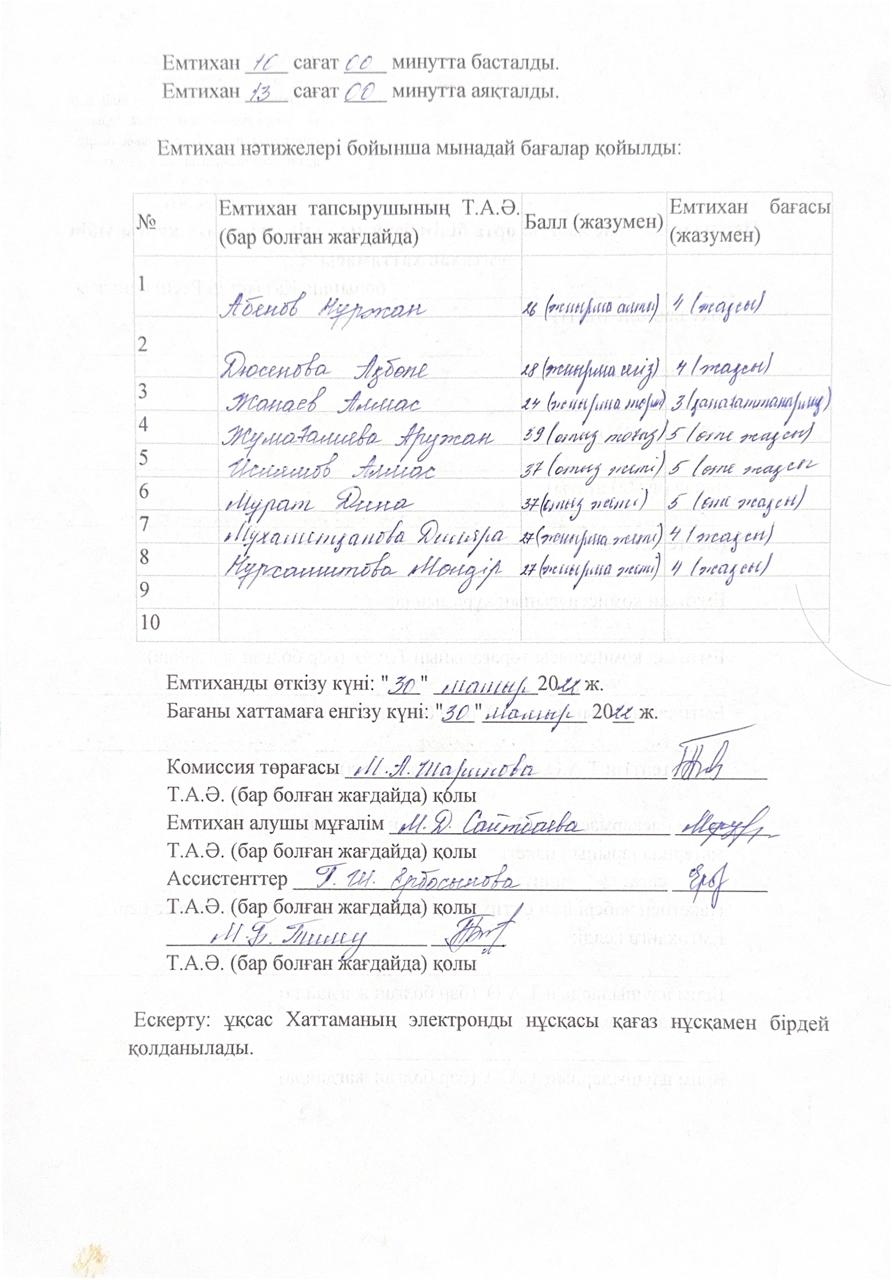 Емтихан 10 сағат 00 минутта басталды.
Емтихан 13 сағат 00 минутта аяқталды.
Емтихан нәтижелері бойынша мынадай бағалар қойылды:
№ Емтихан тапсырушының Т.А.Ә. (бар болған жағдайда) Балл (жазумен) Емтихан бағасы (жазумен)
1 Абенов Нуржан 26 (жиырма алты) 4 (жақсы)
2 Дюсенова Ақбопе 28 (жиырма сегіз) 4 (жақсы)
3 Жанаев Алмас 24 (жиырма төрт) 3 (қанағаттанарлық)
4 Жумағалиева Аружан 39 (отыз тоғыз) 5 (өте жақсы)
5 Исламов Алмас 37 (отыз жеті) 5 (өте жақсы
6 Мурат Дина 37 (отыз жеті) 5 (өте жақсы)
7 27 (жиырма жеті) 4 (жақсы)
8 Мөлдір 27 (жиырма жеті) 4 (жақсы)
9
10
Емтиханды өткізу күні: "30" мамыр 2022 ж.
Бағаны хаттамаға енгізу күні: "30" мамыр 2022 ж.
Комиссия төрағасы М.А. Шарипова
Т.А.Ә. (бар болған жағдайда) қолы
Емтихан алушы мұғалім М.Д. Сайтбаева
Т.А.Ә. (бар болған жағдайда) қолы
Ассистенттер Г.Ш. Ербосынова
Т.А.Ә. (бар болған жағдайда) қолы
М.Б.
Т.А.Ә. (бар болған жағдайда) қолы
Ескерту: ұқсас Хаттаманың электронды нұсқасы қағаз нұсқамен бірдей
қолданылады.